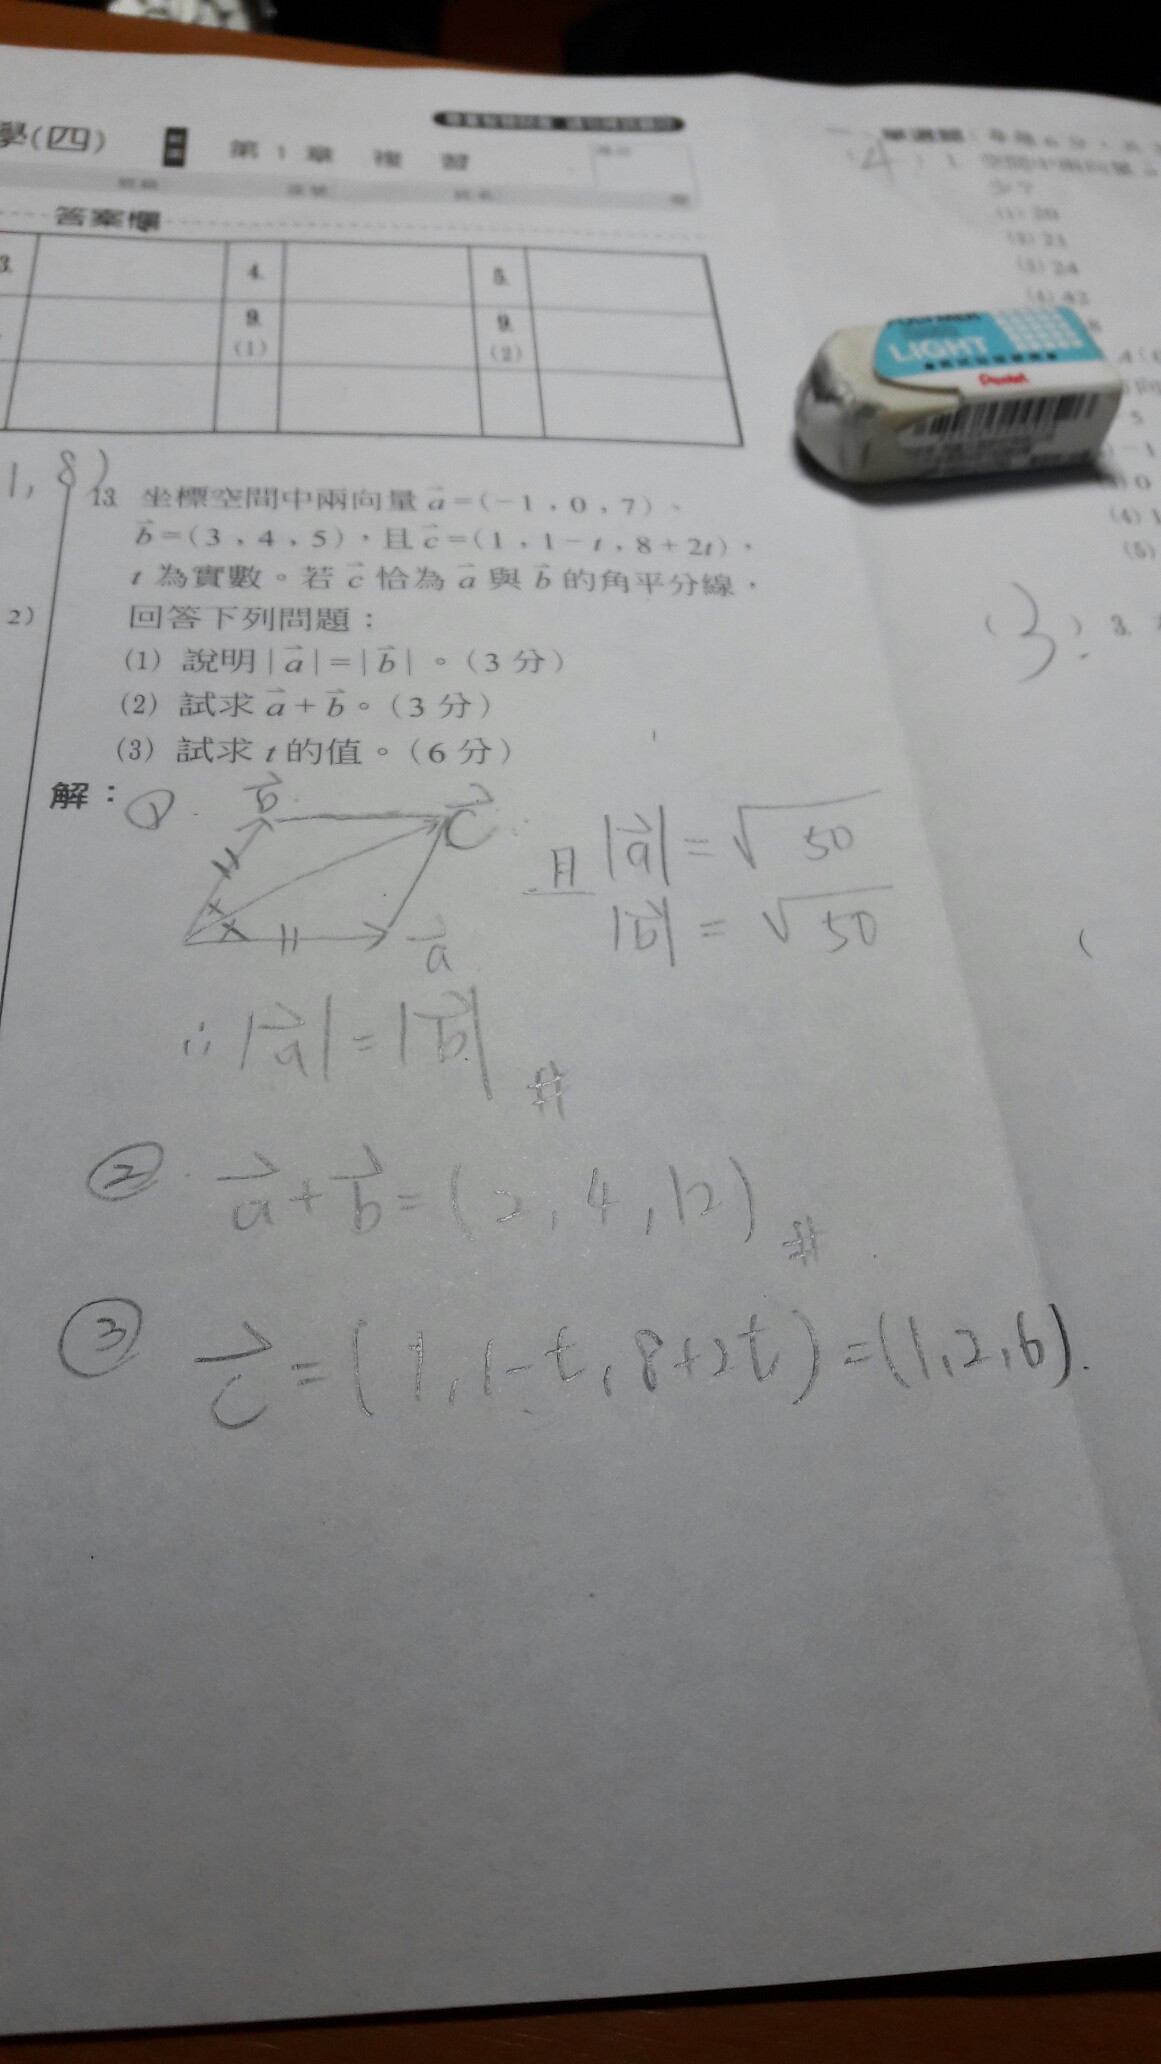 學(四)
第1章 複習
答案欄
3. 4. 5.
9. 9.
(1) (2)
1, 8)
2)
13. 坐標空間中兩向量 a⃗=(−1,0,7)、
b⃗=(3,4,5),且 c⃗=(1,1−t,8+2t),
t 為實數。若 c⃗ 恰為 a⃗ 與 b⃗ 的角平分線,
回答下列問題:
(1) 說明|a⃗|=|b⃗|。(3 分)
(2) 試求 a⃗+b⃗。(3 分)
(3) 試求 t 的值。(6 分)
解:
① b⃗ c⃗ a⃗
且 |a⃗| = √50
|b⃗| = √50
∴ |a⃗| = |b⃗| #
② a⃗+b⃗=(2,4,12) #
③ c⃗=(1,1−t,8+2t)=(1,2,6).
(4) 1. 空間中兩向量
少?
(1) 20
(2) 21
(3) 24
(4) 42
LIGHT
Pentel
(4) 1
(5)
(3) 3.